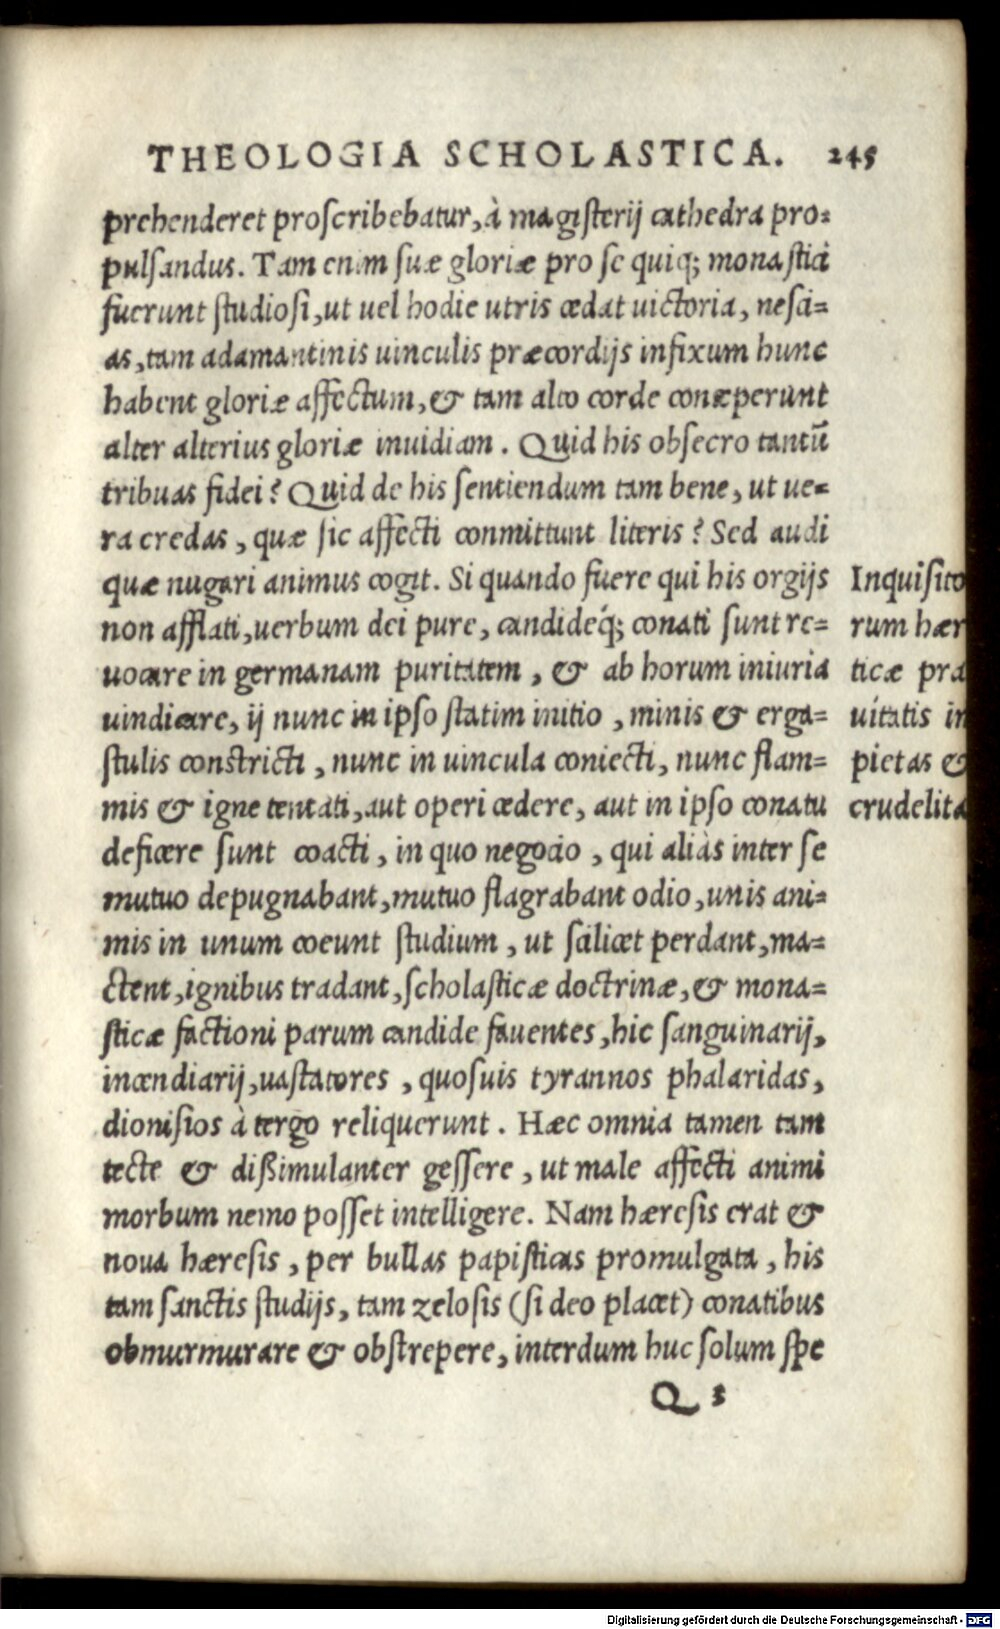 THEOLOGIA SCHOLASTICA. 245
prehenderet proſcribebatur, à magiſterij cathedra pro-
pulſandus. Tam enim ſuæ gloriæ pro ſe quiq; monaſtici
fuerunt ſtudioſi, ut uel hodie utris cedat uictoria, neſci-
as, tam adamantinis uinculis præcordijs infixum hunc
habent gloriæ affectum, & tam alto corde conceperunt
alter alterius gloriæ inuidiam. Quid his obſecro tantũ
tribuas fidei? Quid de his ſentiendum tam bene, ut ue-
ra credas, quæ ſic affecti conmittunt literis? Sed audi
quæ nugari animus cogit. Si quando fuere qui his orgijs
non afflati, uerbum dei pure, candideq́; conati ſunt re-
uocare in germanam puritatem, & ab horum iniuria
uindicare, ij nunc in ipſo ſtatim initio, minis & erga-
ſtulis constricti, nunc in uincula coniecti, nunc flam-
mis & igne tentati, aut operi cedere, aut in ipſo conatu
deficere ſunt coacti, in quo negocio, qui aliàs inter ſe
mutuo depugnabant, mutuo flagrabant odio, unis ani-
mis in unum coeunt ſtudium, ut ſcilicet perdant, ma-
ctent, ignibus tradant, ſcholaſticæ doctrinæ, & mona-
ſticæ factioni parum candide fauentes, hic ſanguinarij,
incendiarij, uaſtatores, quoſuis tyrannos phalaridas,
dioniſios à tergo reliquerunt. Hæc omnia tamen tam
tecte & dißimulanter geſſere, ut male affecti animi
morbum nemo poſſet intelligere. Nam hæreſis erat &
noua hæreſis, per bullas papiſticas promulgata, his
tam ſanctis ſtudijs, tam zelosis (ſi deo placet) conatibus
obmurmurare & obſtrepere, interdum huc ſolum ſpe
Q 3
Inquiſito
rum hær
ticæ pra
uitatis im
pietas &
crudelita
Digitalisierung gefördert durch die Deutsche Forschungsgemeinschaft - DFG